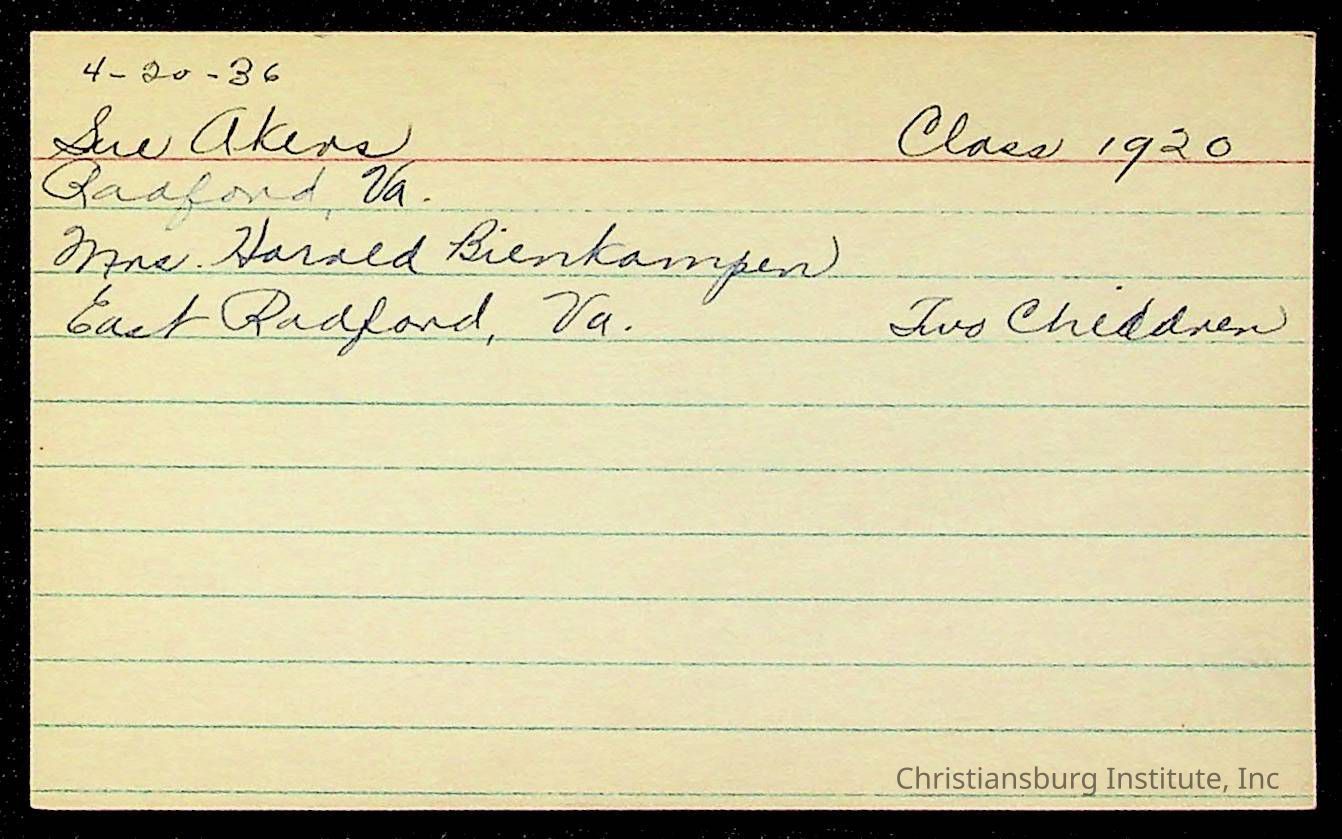 4-20-36
Sue Akers Class 1920
Radford, Va.
Mrs. Harold Bienkampen
East Radford, Va. Two Children
Christiansburg Institute, Inc